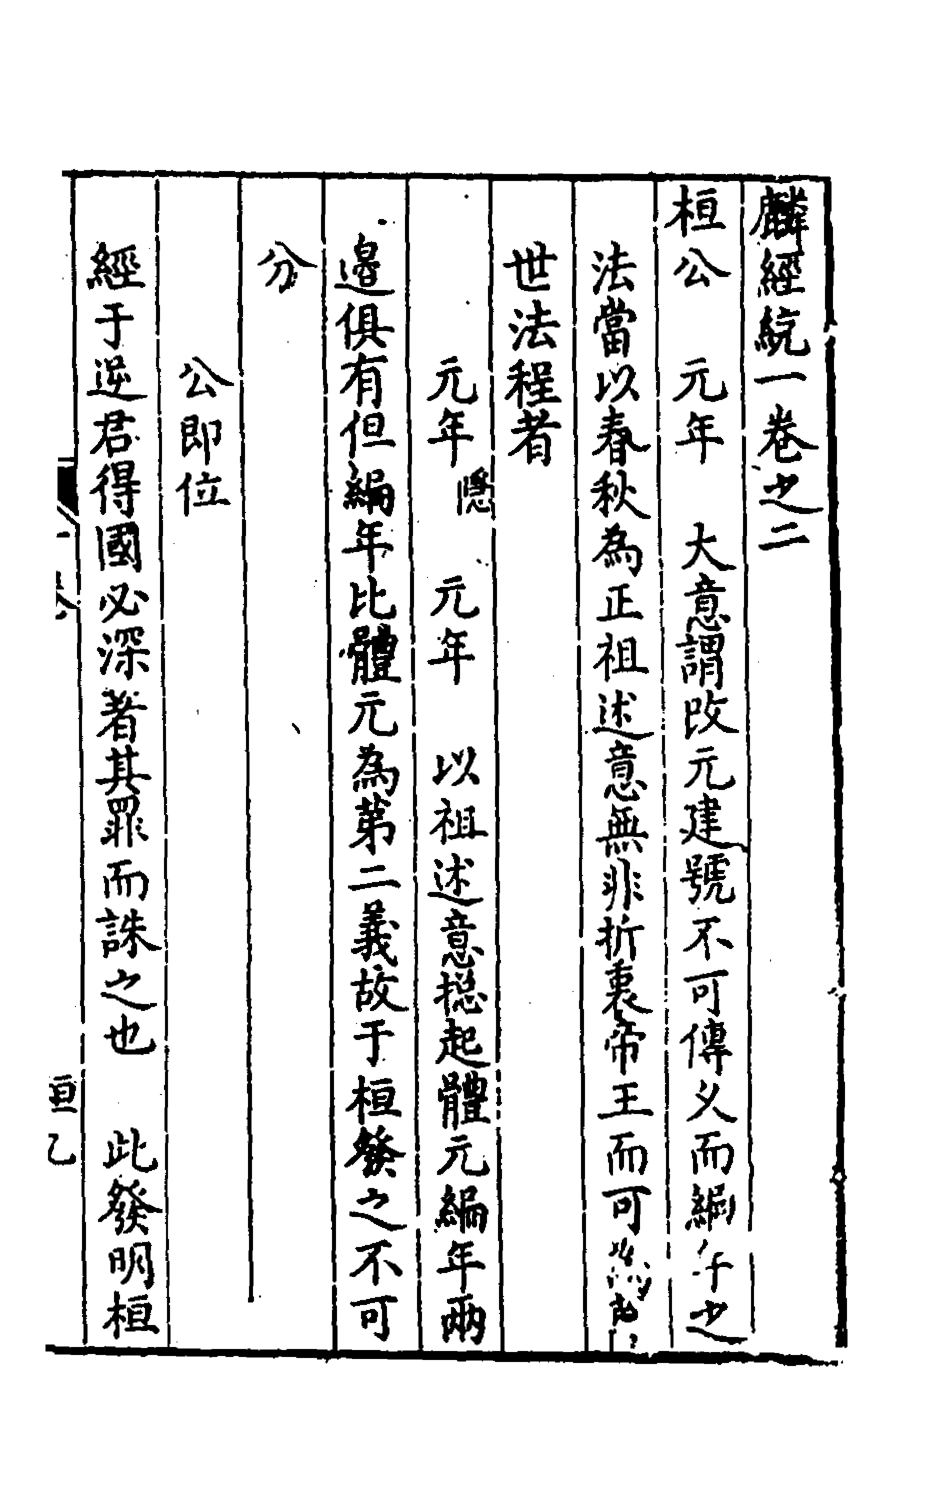 麟經統一卷之二
桓公　元年　大意謂改元建號不可傳乂而編年之
法當以春秋為正祖述意無非折衷帝王而可
世法程者
元年隱　元年　以祖述意摠起體元編年兩
邉俱有但編年比體元為第二義故于桓發之不可
分
公即位
經于逆君得國必深著其罪而誅之也　此發明桓
桓乙